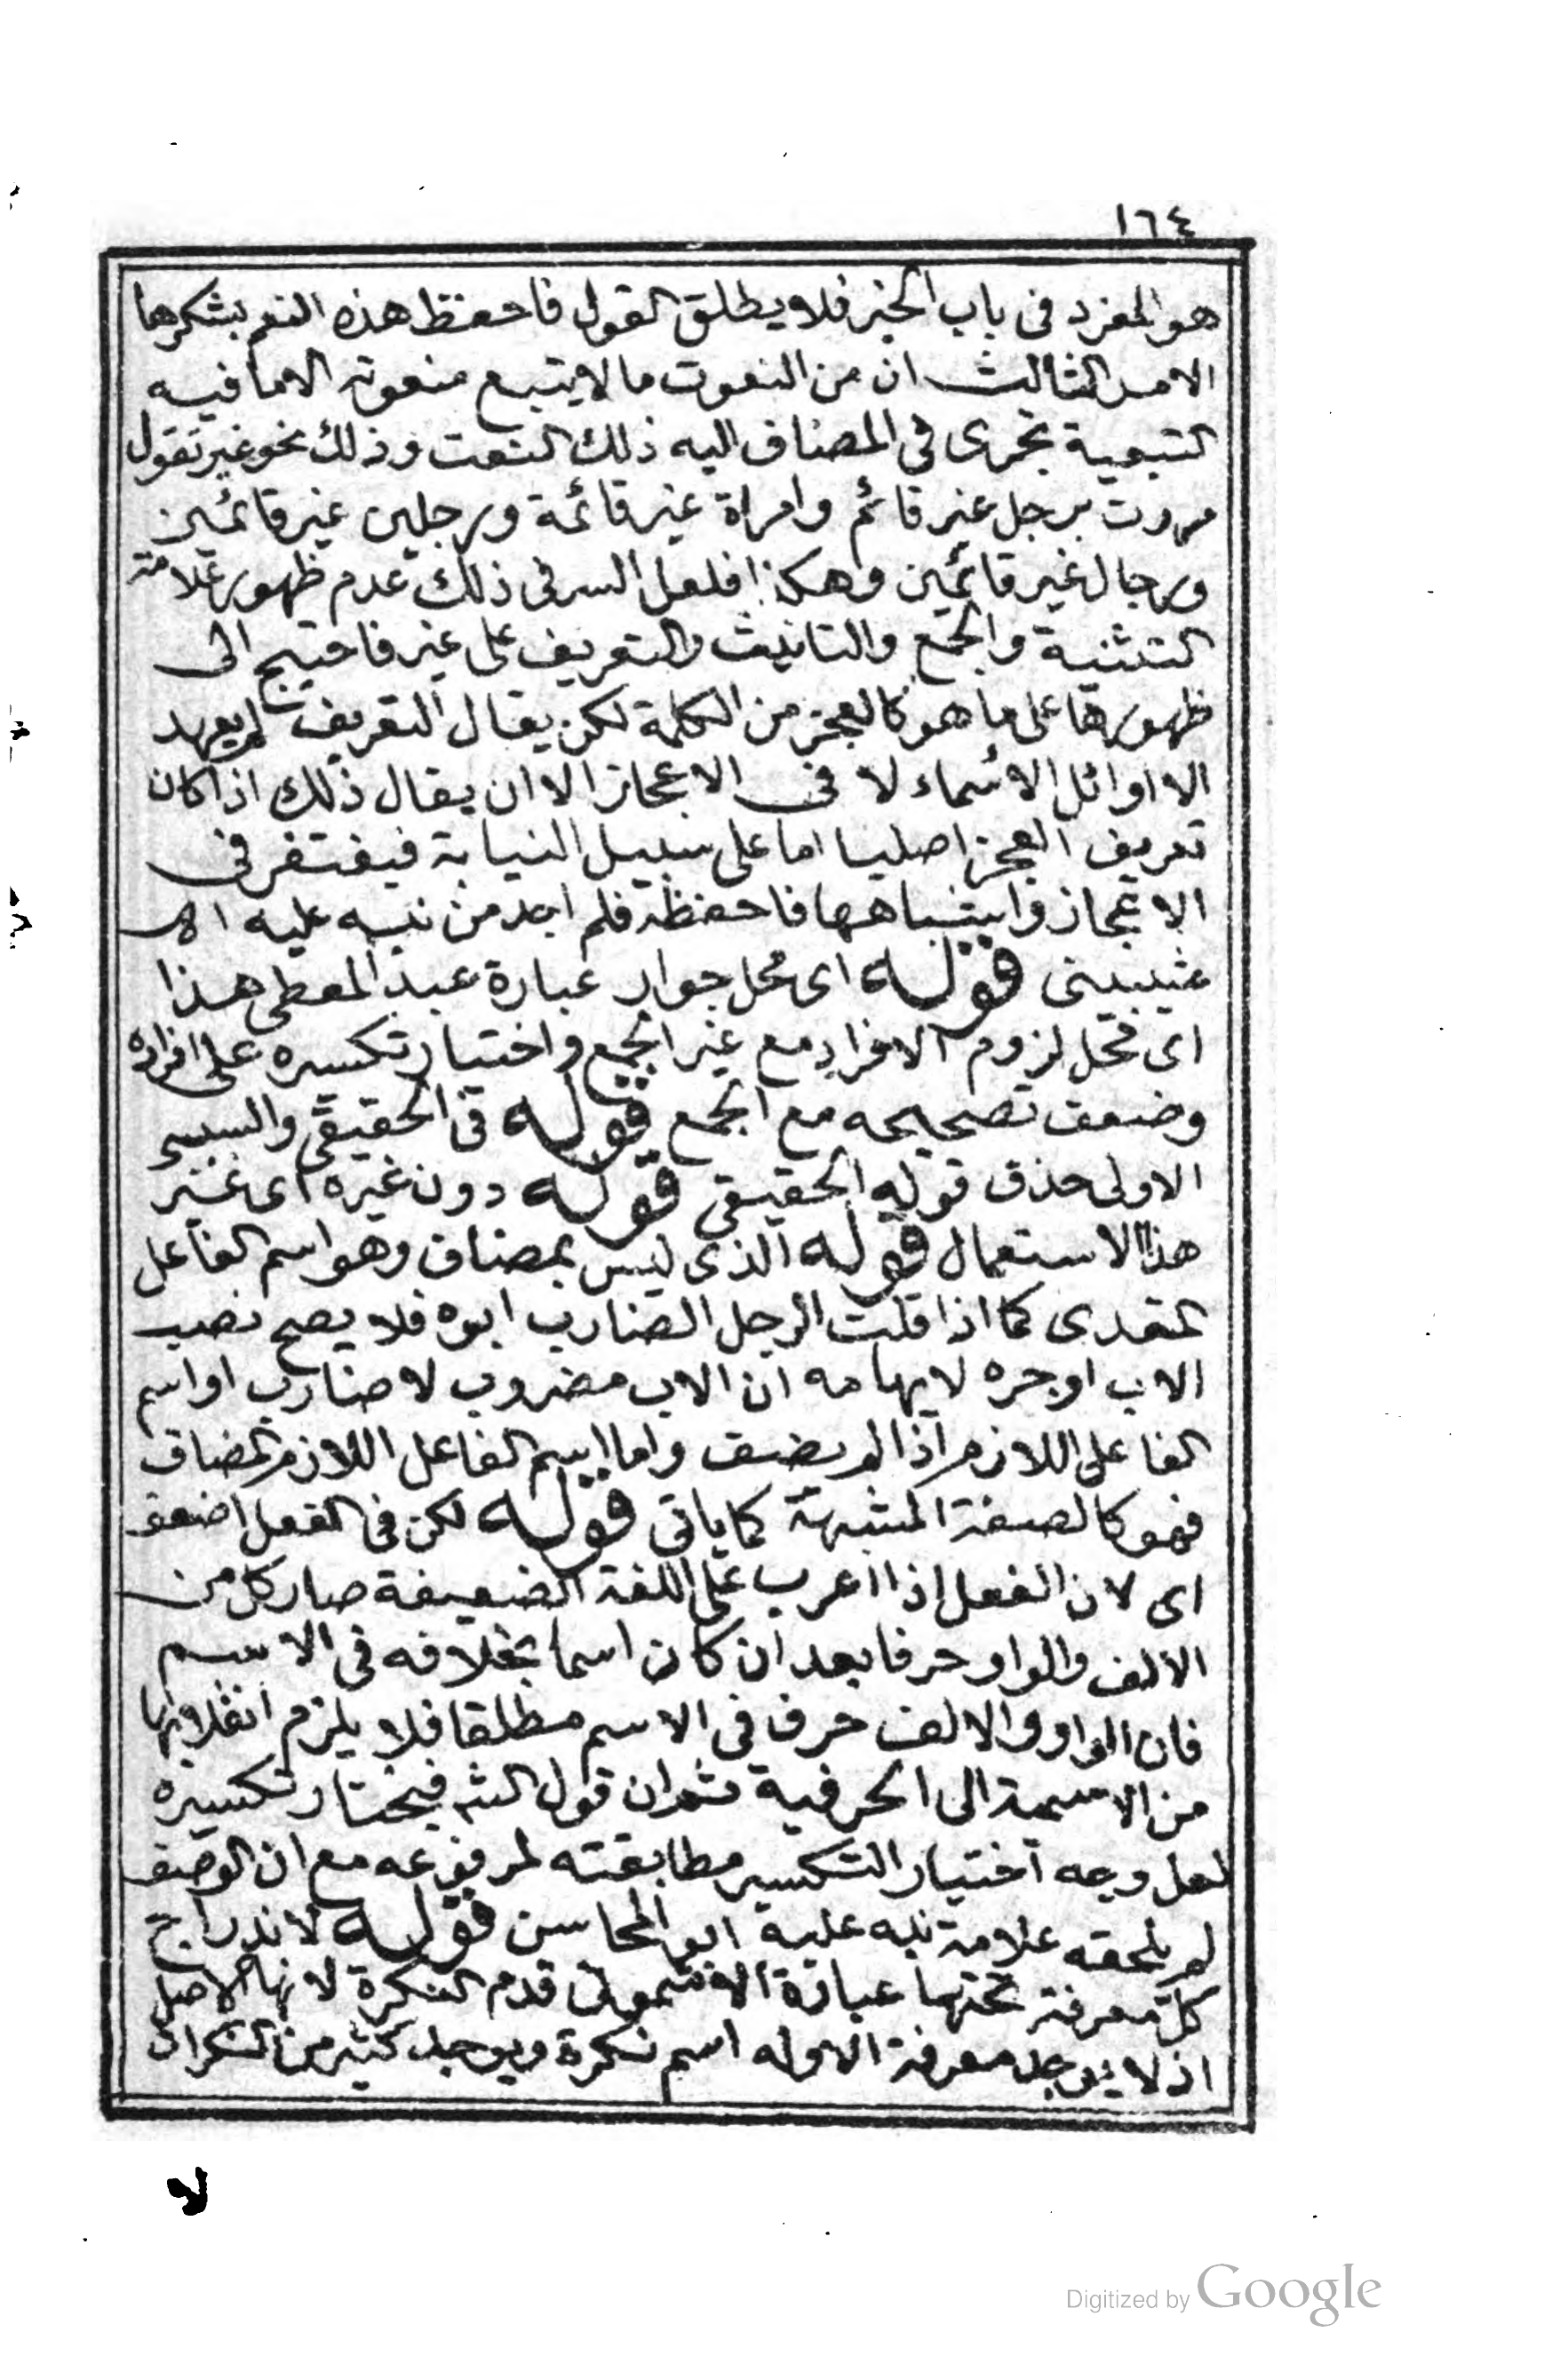 ١٦٤
هو المفرد فى باب الخبر فلا يطلق القول فاحفظ هذه النعم بشكرها
الامر الثالث ان من النعوت ما لا يتبع منعوته الا ما فيه
التبعية تجرى في المضاف اليه ذلك النعت وذلك نحو غير تقول
مررت برجل غير قائم وامراة غير قائمة ورجلين غير قائمين
ورجال غير قائمين وهكذا فلعل السر فى ذلك عدم ظهور علامة
التثنية والجمع والتانيث والتعريف على غير فاحتيج الى
ظهورها على ما هو كالعجز من الكلمة لكن يقال التعريف لم يعهد
الا اوائل الاسماء لا فى الاعجاز الا ان يقال ذلك اذا كان
تعريف العجز اصليا اما على سبيل النيابة فيغتفر فى
الاعجاز واشباهها فاحفظه فلم اجد من نبه عليه اهـ
شبينى قوله اى محل جواز عبارة عبد المعطى هذا
اى محل لزوم الافراد مع غير الجمع واختيار تكسيره على افراده
وضعف تصحيحه مع الجمع قوله فى الحقيقى والسببى
الاولى حذف قوله الحقيقى قوله دون غيره اى غير
هذا الاستعمال قوله الذى ليس بمضاف وهو اسم الفاعل
المتعدى كما اذا قلت الرجل الضارب ابوه فلا يصح نصب
الاب او جره لايهامه ان الاب مضروب لا ضارب او اسم
الفاعل اللازم اذا لم يضف واما اسم الفاعل اللازم المضاف
فهو كالصفة المشبهة كما ياتى قوله لكن فى الفعل اضعف
اى لان الفعل اذا اعرب على اللغة الضعيفة صار كل من
الالف والواو حرفا بعد ان كان اسما بخلافه فى الاسم
فان الواو والالف حرف فى الاسم مطلقا فلا يلزم انقلابها
من الاسمية الى الحرفية ثم ان قول الش فيختار تكسيره
لعل وجه اختيار التكسير مطابقته لمرفوعه مع ان الوصف
لم يلحقه علامة نبه عليه ابو المحاسن قوله لاندراج
كل معرفة تحتها عبارة الاشمونى قدم النكرة لانها الاصل
اذ لا يوجد معرفة الا وله اسم نكرة ويوجد كثير من النكرات
لا
Digitized by Google